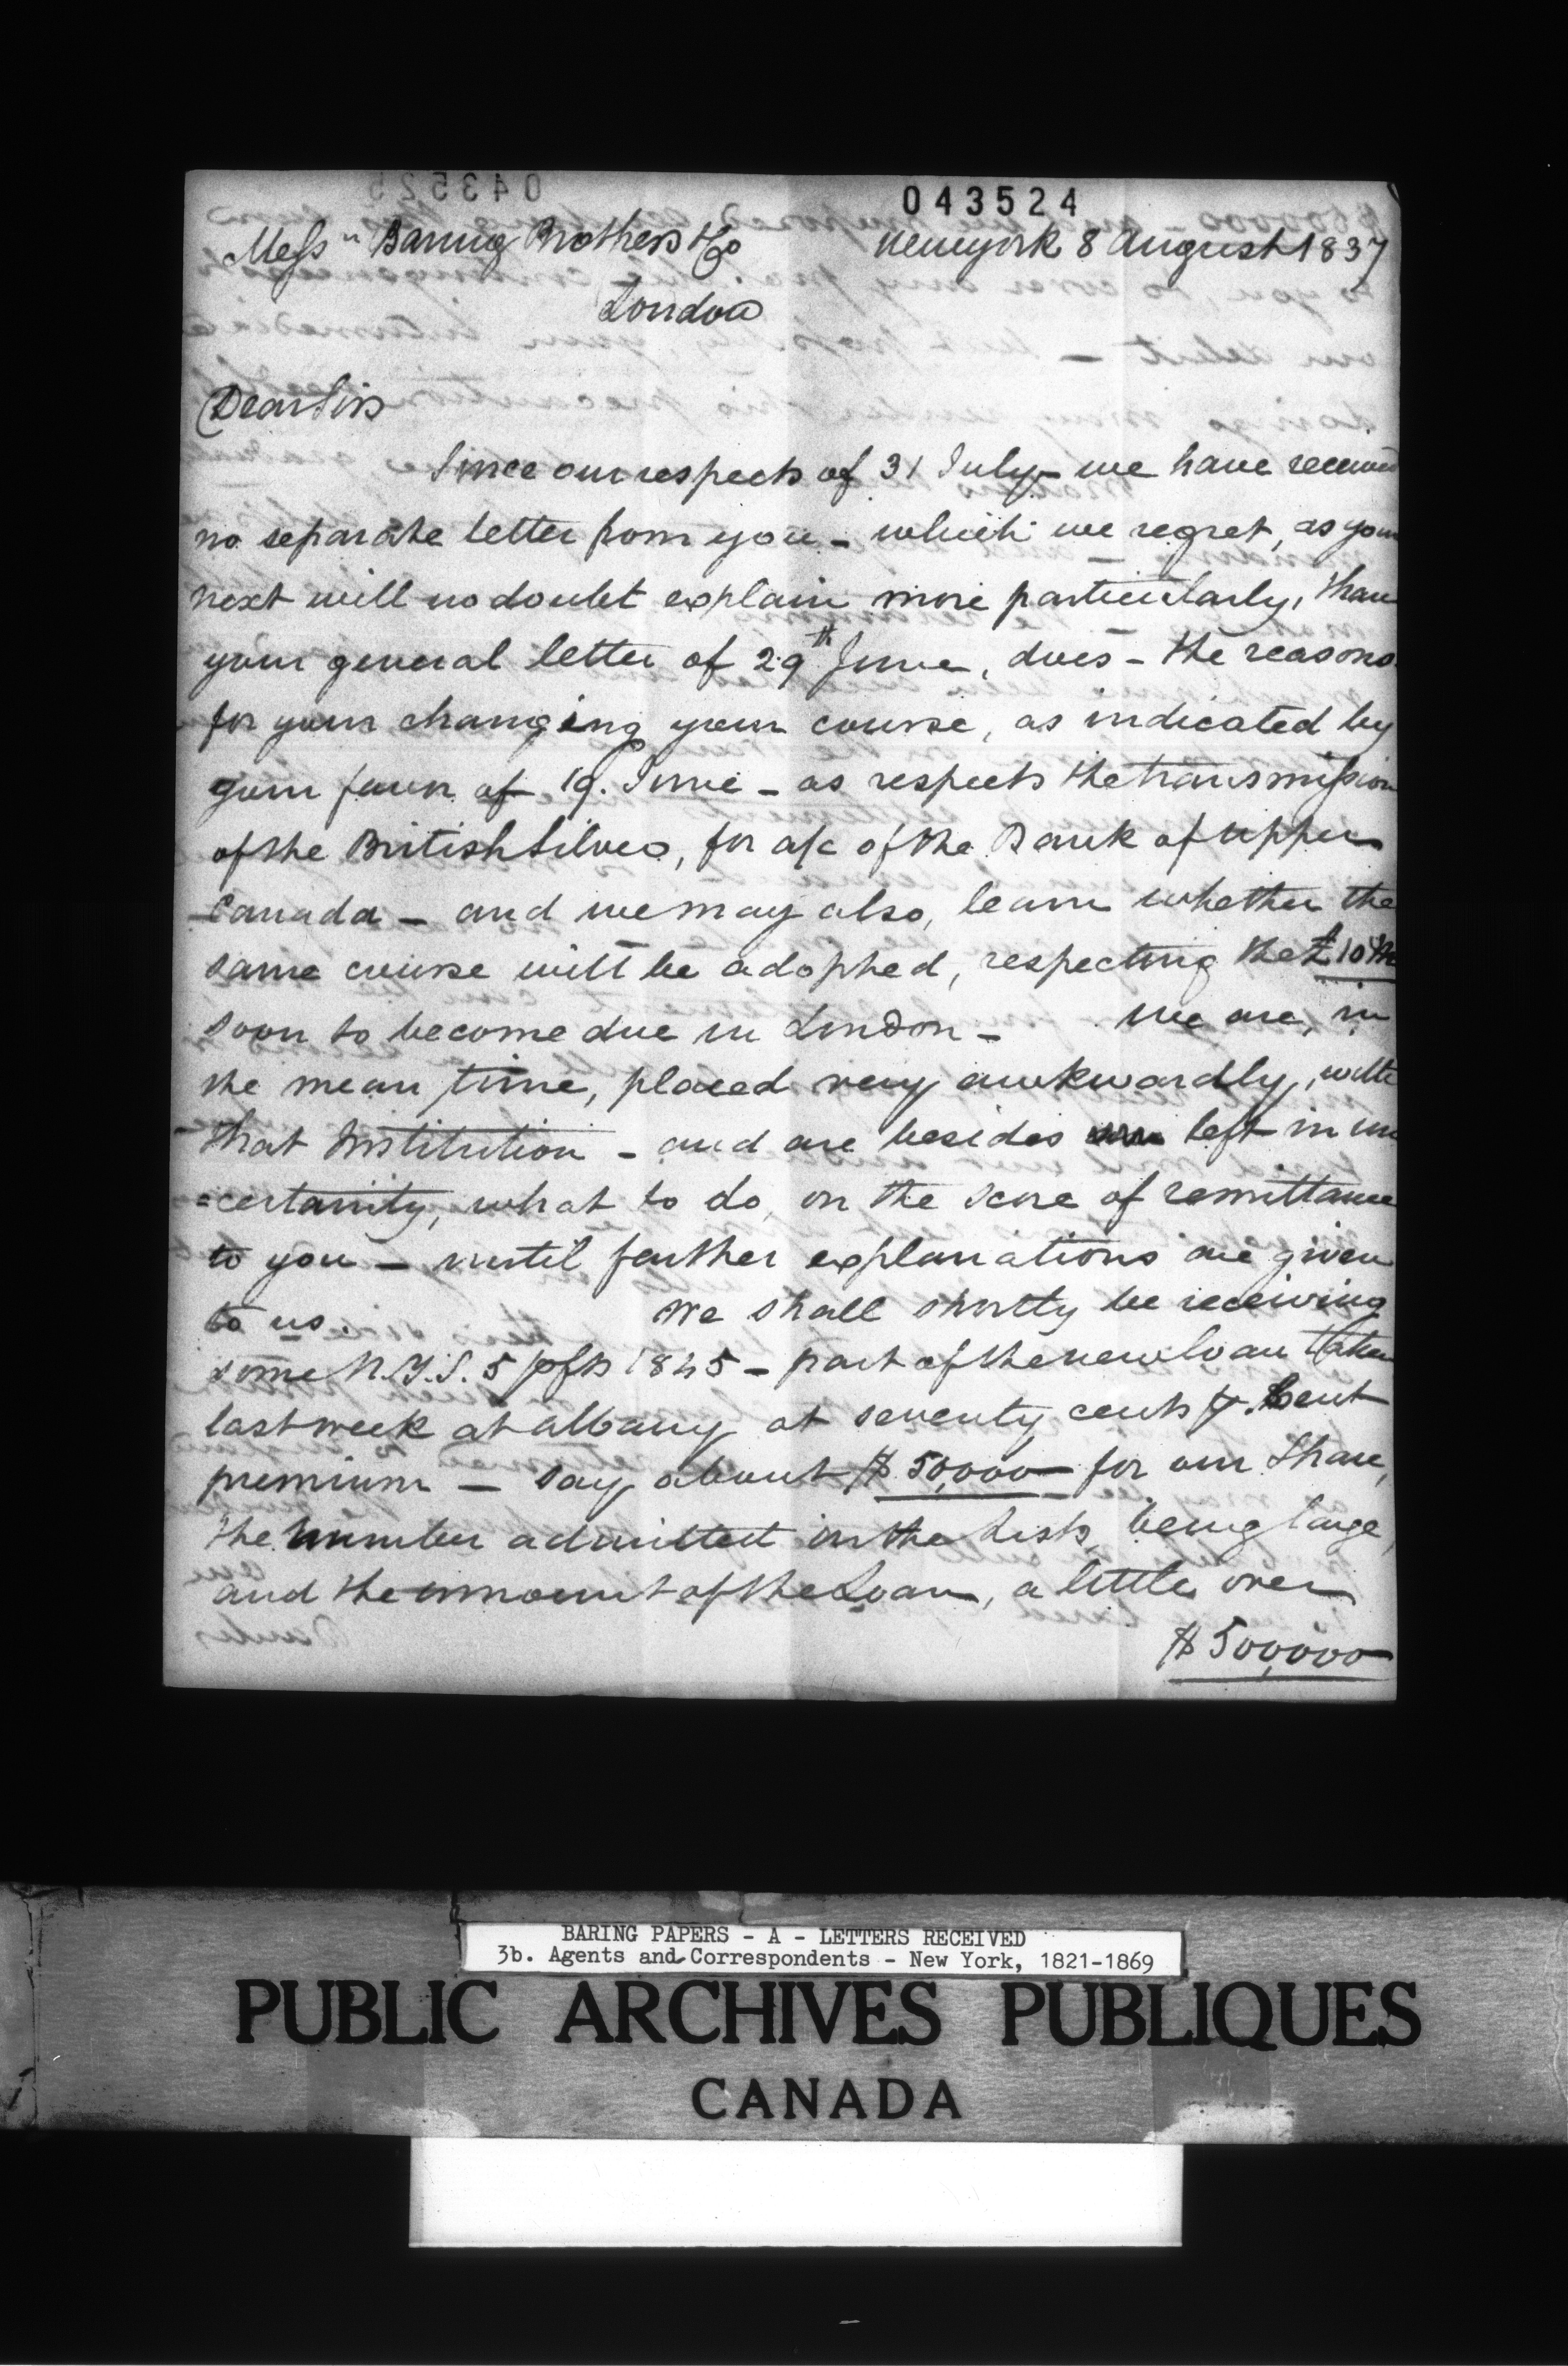 043524
Messrs Baring Brothers & Co
New york 8 August 1837
London
Dear Sirs
Since our respects of 31 July - we have received
no separate letter from you - which we regret, as your
next will no doubt explain more particularly, than
your general letter of 29th June, does - the reasons
for your changing your course, as indicated by
your favor of 19. June - as respects the transmission
of the British Silver, for a/c of the Bank of Upper
Canada - and we may also, learn whether the
same course will be adopted, respecting the £10
soon to become due in London - We are, in
the mean time, placed very awkwardly, with
that Institution - and are besides left in un
=certainty, what to do, on the score of remittance
to you - until further explanations are given
to us. We shall shortly be receiving
some N.Y.S. 5 pcts 1845 - part of the new loan taken
last week at Albany at seventy cents p. Cent
premium - say about $50,000 - for our Share,
the number admitted in the Lists, being large,
and the amount of the Loan, a little over
$500,000
BARING PAPERS - A - LETTERS RECEIVED
3b. Agents and Correspondents - New York, 1821-1869
PUBLIC ARCHIVES PUBLIQUES
CANADA